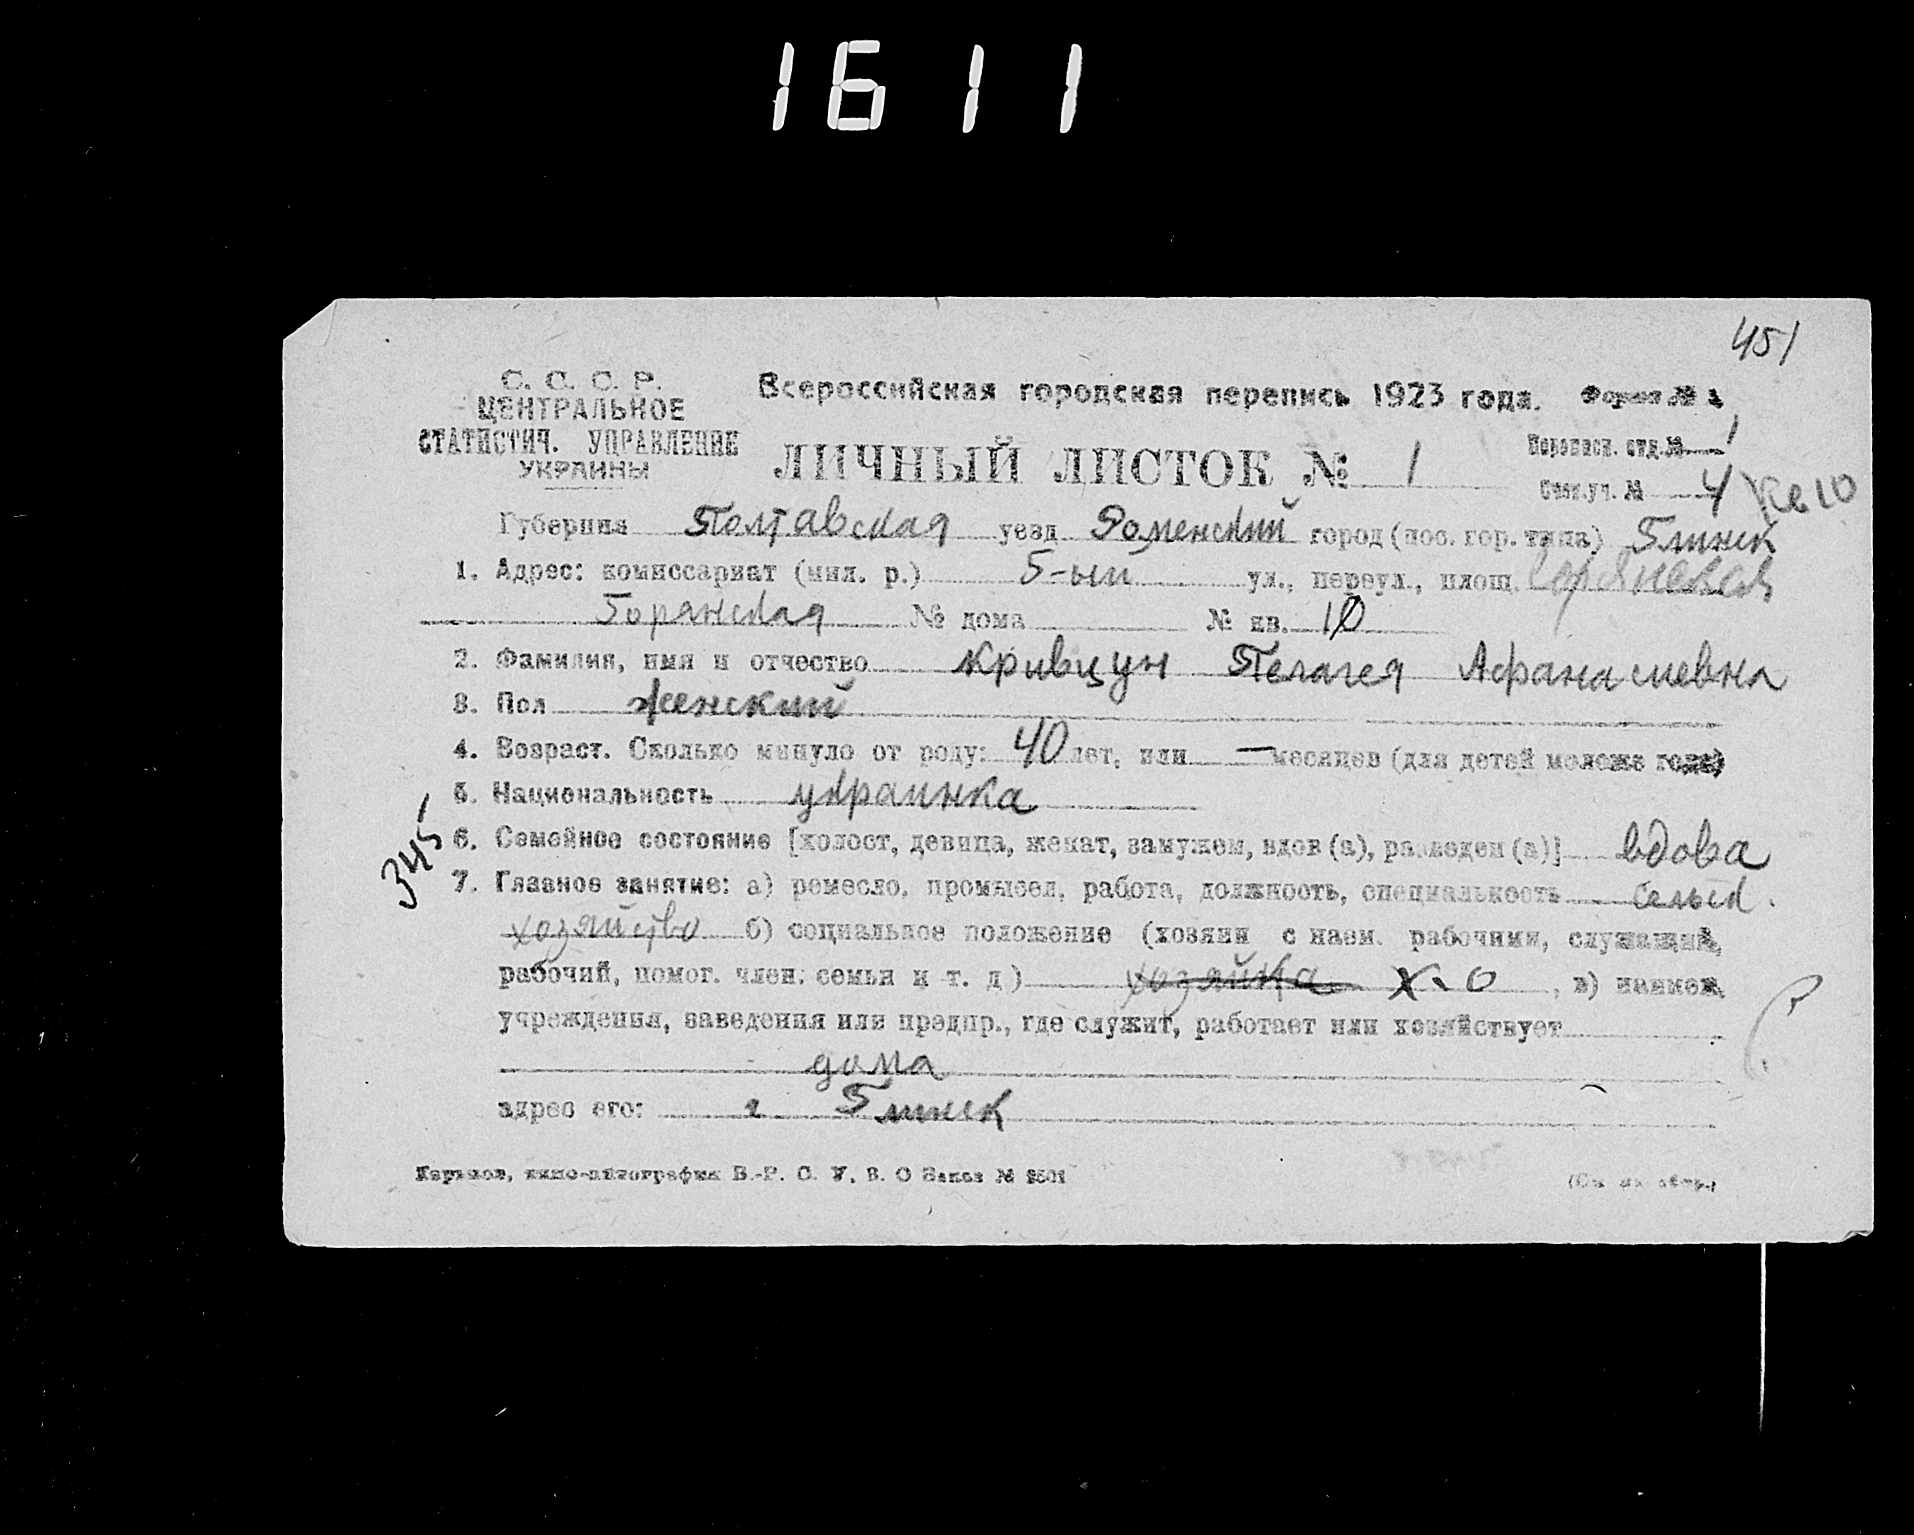 1611
451
С. С. С. Р.
ЦЕНТРАЛЬНОЕ
СТАТИСТИЧ. УПРАВЛЕНИЕ
УКРАИНЫ
Всероссийская городская перепись 1923 года. Форма №
ЛИЧНЫЙ ЛИСТОК № 1
Переписн. отд. № 1
Счет. уч. № 4
Губерния Полтавская уезд Роменский город (пос. гор. типа) Глинск
1. Адрес: комиссариат (мил. р.) 5-ый ул., переул., площ.
Горянская № дома № кв. 10
2. Фамилия, имя и отчество Кривцун Пелагея Афанасиевна
3. Пол женский
4. Возраст. Сколько минуло от роду: 40 лет, или — месяцев (для детей моложе года)
5. Национальность украинка
345
6. Семейное состояние [холост, девица, женат, замужем, вдов (а), разведен (а)] вдова
7. Главное занятие: а) ремесло, промысел, работа, должность, специальность сельск.
хозяйство б) социальное положение (хозяин с наем. рабочими, служащий,
рабочий, помог. член. семьи и т. д) хозяйка х-о, в) наимен.
учреждения, заведения или предпр., где служит, работает или хозяйствует
дома
адрес его: г Глинск
Харьков, типо-литография В.-Р. С. У. В. О Заказ №
(См. на обор.)